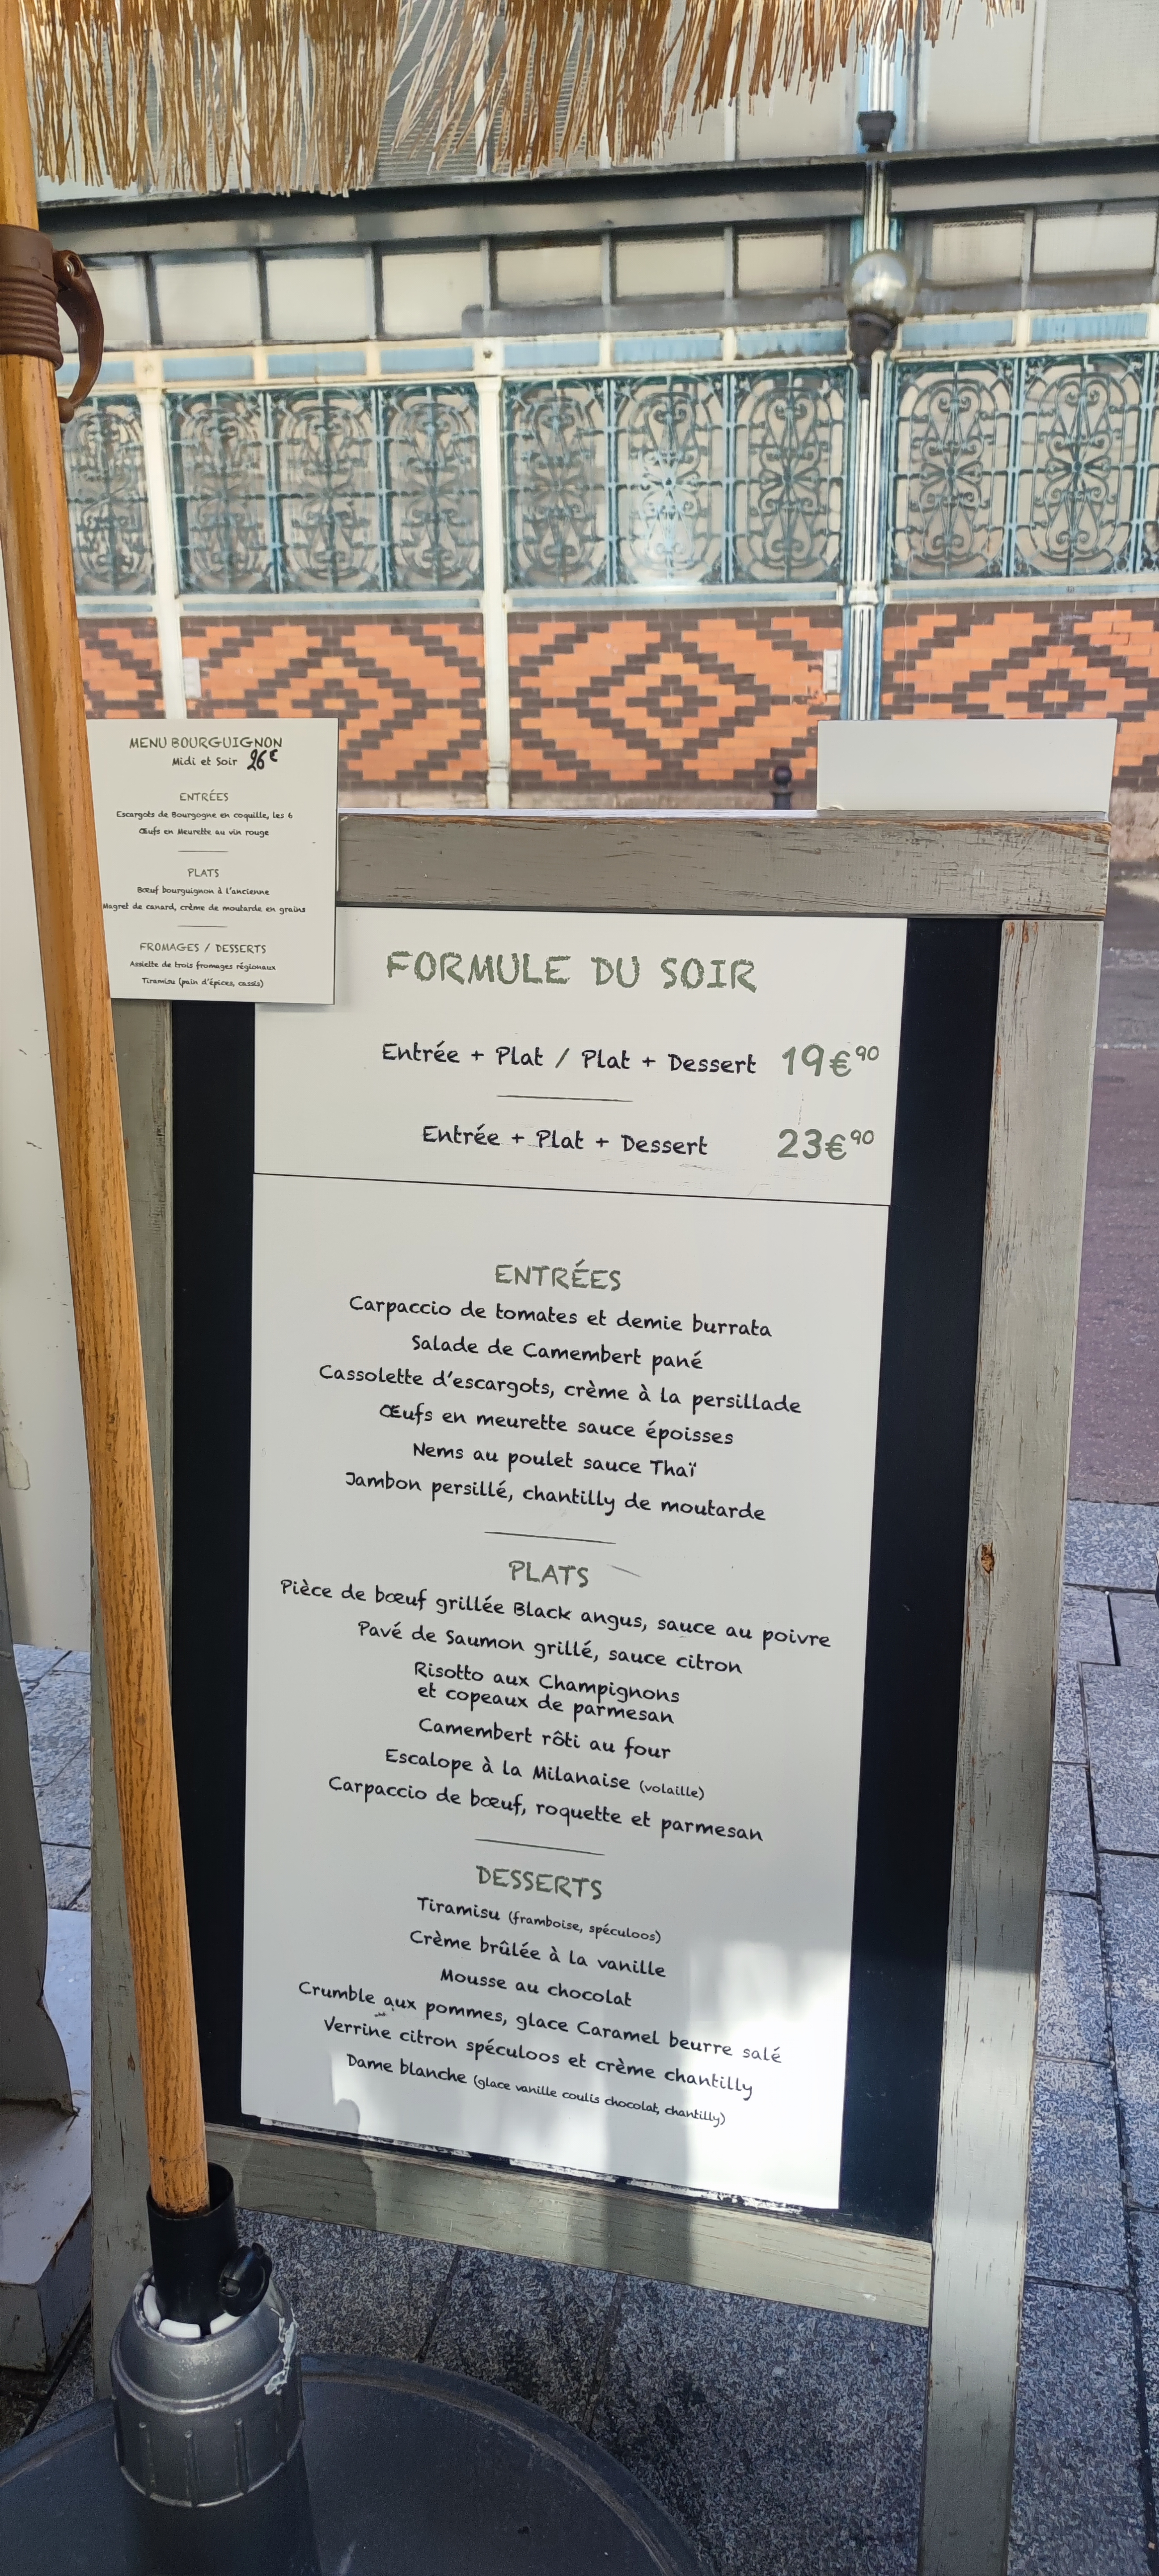 MENU BOURGUIGNON
Midi et Soir 26€
ENTRÉES
Escargots de Bourgogne en coquille, les 6
Œufs en Meurette au vin rouge
PLATS
Bœuf bourguignon à l'ancienne
Magret de canard, crème de moutarde en grains
FROMAGES / DESSERTS
Assiette de trois fromages régionaux
Tiramisu (pain d'épices, cassis)
FORMULE DU SOIR
Entrée + Plat / Plat + Dessert 19€90
Entrée + Plat + Dessert 23€90
ENTRÉES
Carpaccio de tomates et demie burrata
Salade de Camembert pané
Cassolette d'escargots, crème à la persillade
Œufs en meurette sauce époisses
Nems au poulet sauce Thaï
Jambon persillé, chantilly de moutarde
PLATS
Pièce de bœuf grillée Black angus, sauce au poivre
Pavé de Saumon grillé, sauce citron
Risotto aux Champignons
et copeaux de parmesan
Camembert rôti au four
Escalope à la Milanaise (volaille)
Carpaccio de bœuf, roquette et parmesan
DESSERTS
Tiramisu (framboise, spéculoos)
Crème brûlée à la vanille
Mousse au chocolat
Crumble aux pommes, glace Caramel beurre salé
Verrine citron spéculoos et crème chantilly
Dame blanche (glace vanille coulis chocolat, chantilly)